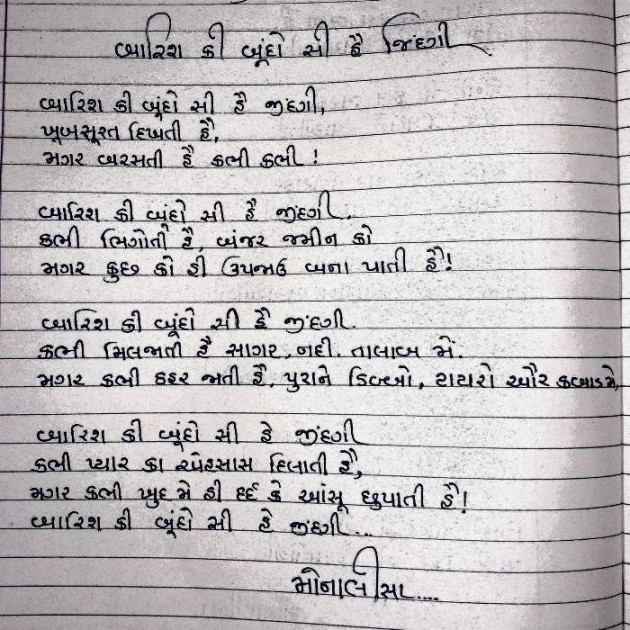 બારિશ કી બૂંદો સી હૈ જિંદગી
બારિશ કી બૂંદો સી હૈ જીંદગી,
ખૂબસૂરત દિખતી હૈ,
મગર બરસતી હૈ કભી કભી !
બારિશ કી બૂંદો સી હૈ જીંદગી.
કભી ભિગોતી હૈ, બંજર જમીન કો
મગર કુછ કો હી ઉપજાઉ બના પાતી હૈ!
બારિશ કી બૂંદો સી હૈ જીંદગી.
કભી મિલજાતી હૈ સાગર, નદી. તાલાબ મેં.
મગર કભી ઠહર જાતી હૈ, પુરાને ડિબ્બો, ટાયરો ઔર કબાડમે,
બારિશ કી બૂંદો સી હે જીંદગી
કભી પ્યાર કા એહસાસ દિલાતી હૈ,
મગર કભી ખુદ મે હી દર્દ કે આંસૂ છુપાતી હૈ!
બારિશ કી બૂંદો સી હે જીંદગી...
મોનાલીસા....